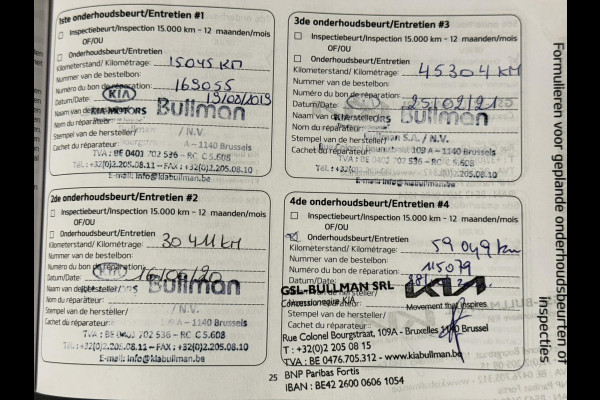 1ste onderhoudsbeurt/Entretien #1
Inspectiebeurt/Inspection 15.000 km - 12 maanden/mois
OF/OU
Onderhoudsbeurt/Entretien
Kilometerstand/ Kilométrage: 15045 KM
Nummer van de bestelbon:
Numéro du bon de réparation: 169055
Datum/Date: 19/02/2019
KIA
KIA MOTORS Bullman
Naam van
Nom du réparateur:
Stempel van de hersteller/ / N.V.
Cachet du réparateur: A - 1140 Brussels
TVA : BE 0401 702 536 - RC C 5.608
Tél. : +32(0)2.205.08.11 - FAX : +32(0)2.205.08.10
E-mail: info@kiabullman.be
2de onderhoudsbeurt/Entretien #2
Inspectiebeurt/Inspection 15.000 km - 12 maanden/mois
OF/OU
Onderhoudsbeurt/Entretien
Kilometerstand/ Kilométrage: 30411 KM
Nummer van de bestelbon:
Numéro du bon de réparation:
Datum/Date:
KIA
Bullman
Naam van de hersteller/
Nom du réparateur:
Stempel van de hersteller/ / N.V.
Cachet du réparateur: A - 1140 Brussels
TVA : BE 0401 702 536 - RC C 5.608
Tél. : +32(0)2.205.08.11 - FAX : +32(0)2.205.08.10
E-mail: info@kiabullman.be
25
3de onderhoudsbeurt/Entretien #3
Inspectiebeurt/Inspection 15.000 km - 12 maanden/mois
OF/OU
Onderhoudsbeurt/Entretien
Kilometerstand/ Kilométrage: 45304 KM
Nummer van de bestelbon:
Numéro du bon de réparation:
Datum/Date: 25/02/21
Bullman
Nom du réparateur:
Stempel van de hersteller/ S.A. / N.V.
Cachet du réparateur: 109 A - 1140 Brussels
TVA : BE 0401 702 536 - RC C 5.608
Tél. : +32(0)2.205.08.10
E-mail: info@kiabullman.be
4de onderhoudsbeurt/Entretien #4
Inspectiebeurt/Inspection 15.000 km - 12 maanden/mois
OF/OU
Onderhoudsbeurt/Entretien
Kilometerstand/ Kilométrage: 59049 km
Nummer van de bestelbon:
Numéro du bon de réparation: 115079
Datum/Date:
GSL-BULLMAN SRL KIA
Concessionnaire KIA Movement that inspires
Stempel van de hersteller/
Cachet du réparateur:
Rue Colonel Bourgstraat, 109A - Bruxelles 1140 Brussel
T : +32(0)2 205 08 15
TVA : BE 0476.705.312 - www.kiabullman.be
BNP Paribas Fortis
IBAN : BE42 2600 0606 1054
Formulieren voor geplande onderhoudsbeurten of
inspecties